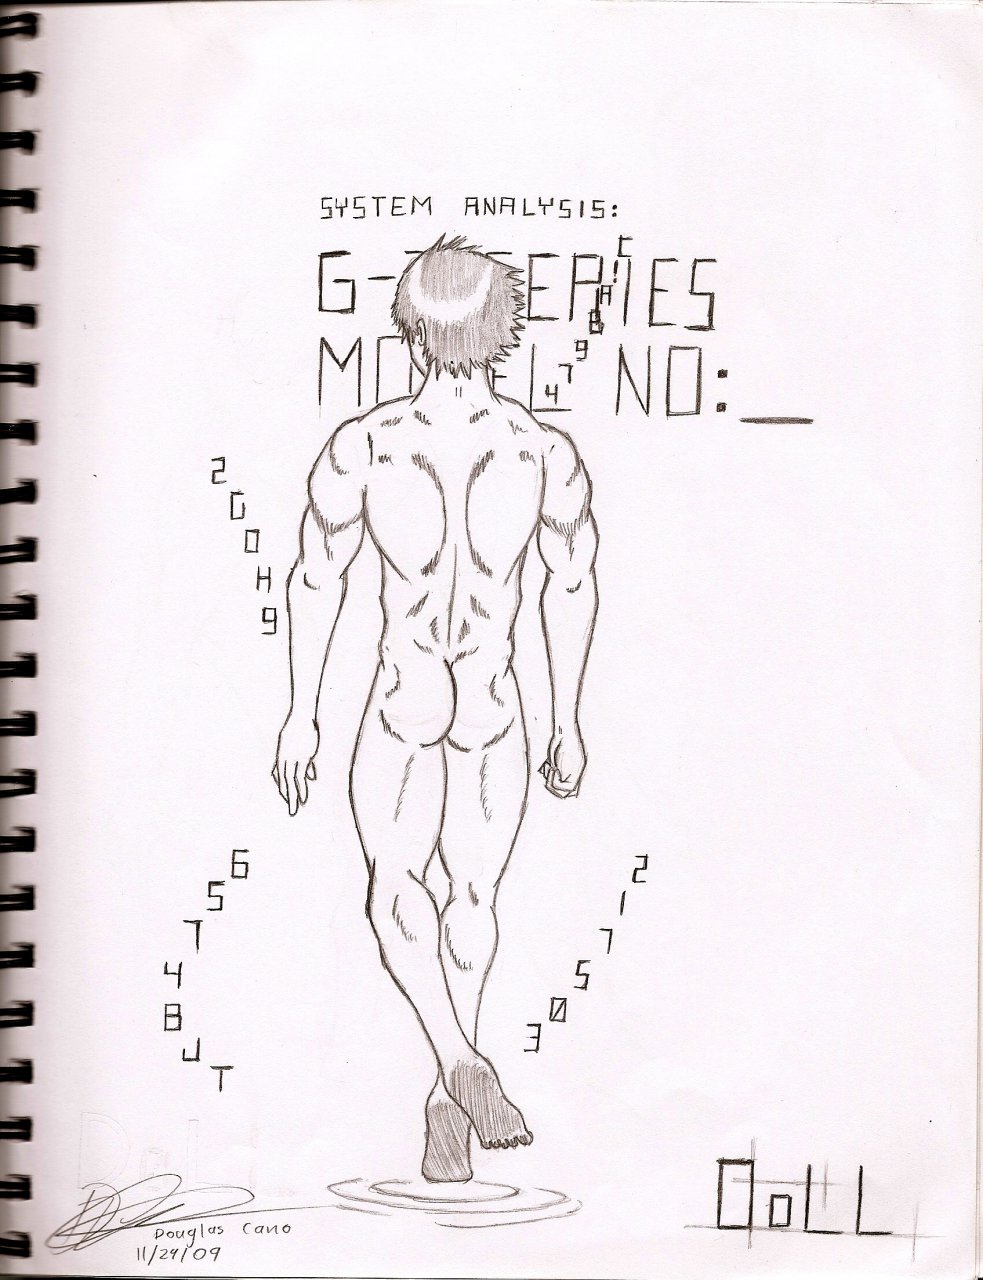 SYSTEM ANALYSIS:
G- SERIES
MODEL NO:_
2GOH9
65T4BJT
217503
DoLL
Douglas Cano
11/24/09